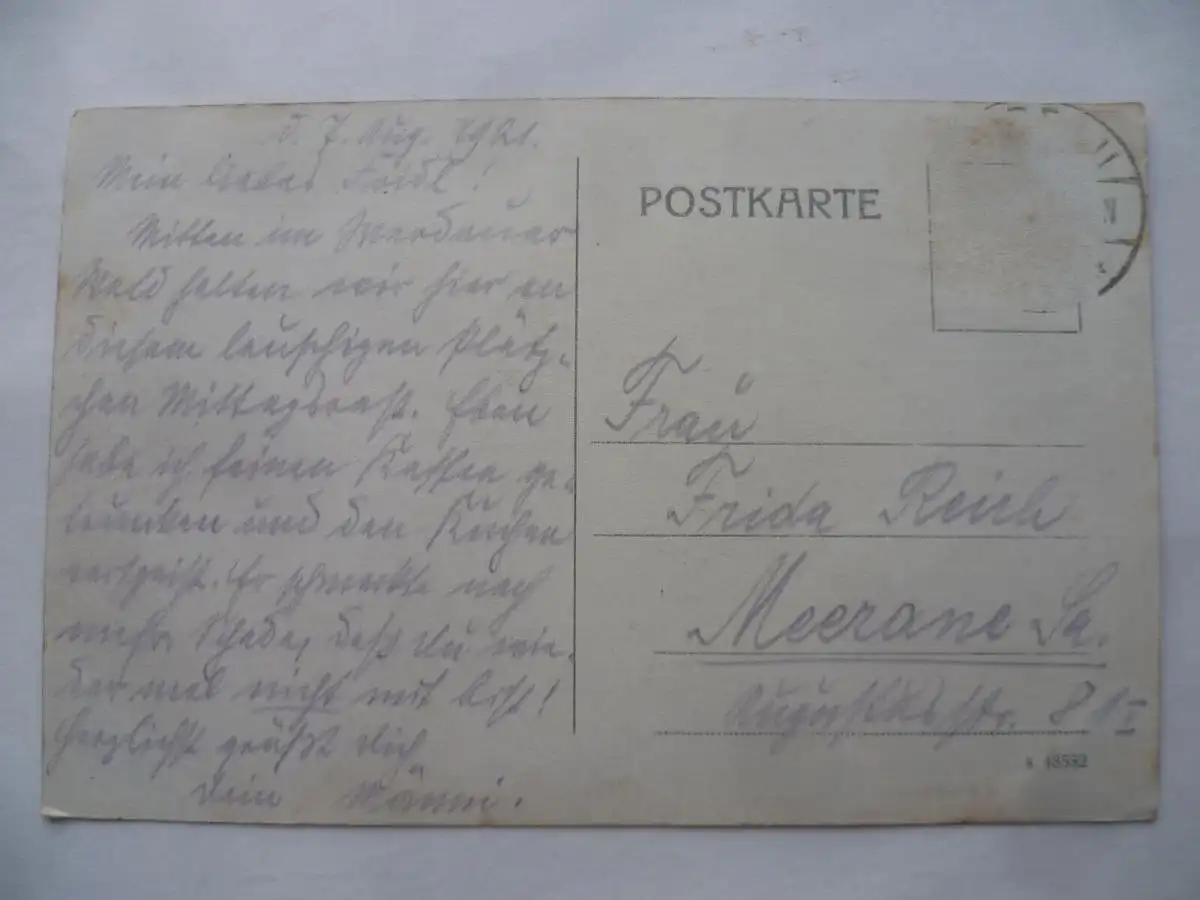 d. 7. Aug. 1921.
Mein liebes Friedl!
Mitten im Werdauer
Wald halten wir hier an
diesem lauschigen Plätz-
chen Mittagsrast. Eben
habe ich feinen Kaffee ge-
trunken und den Kuchen
verspeist. Er schmeckte nach
mehr. Schade, daß Du wie-
der mal nicht mit bist!
Herzlichst grüßt Dich
Dein Männi.
POSTKARTE
Frau
Frida Reich
Meerane Sa.
str. 81 I
48532